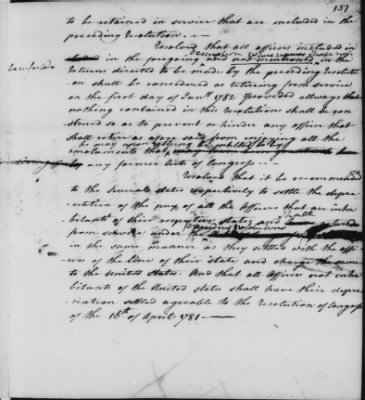 151
to be retained in service that are included in the
preceding Resolution. —
Resolved that all officers included in
in the foregoing and not mentioned in the
returns directed to be made by the preceding Resolu-
-tion shall be considered as retiring from service
on the first day of Jany 1782 Provided always that
nothing contained in this Resolution shall be con
strued so as to prevent or hinder any officer that
shall retire as afore said from enjoying all the
emoluments that
he may upon be entitled to by
by any former Acts of Congress —
Resolved that it be recommended
to the several states respectively to settle the depre
-ciation of the pay of all the Officers that are inha
bitants of their respective states and shall
from service under the
in the same manner as they settle with the offi
cers of the line of their state and charge the same
to the United States. And that all Officers not inha
bitants of the United States shall have their depre
ciation settled agreeable to the Resolution of Congress
of the 10th of April 1780 —